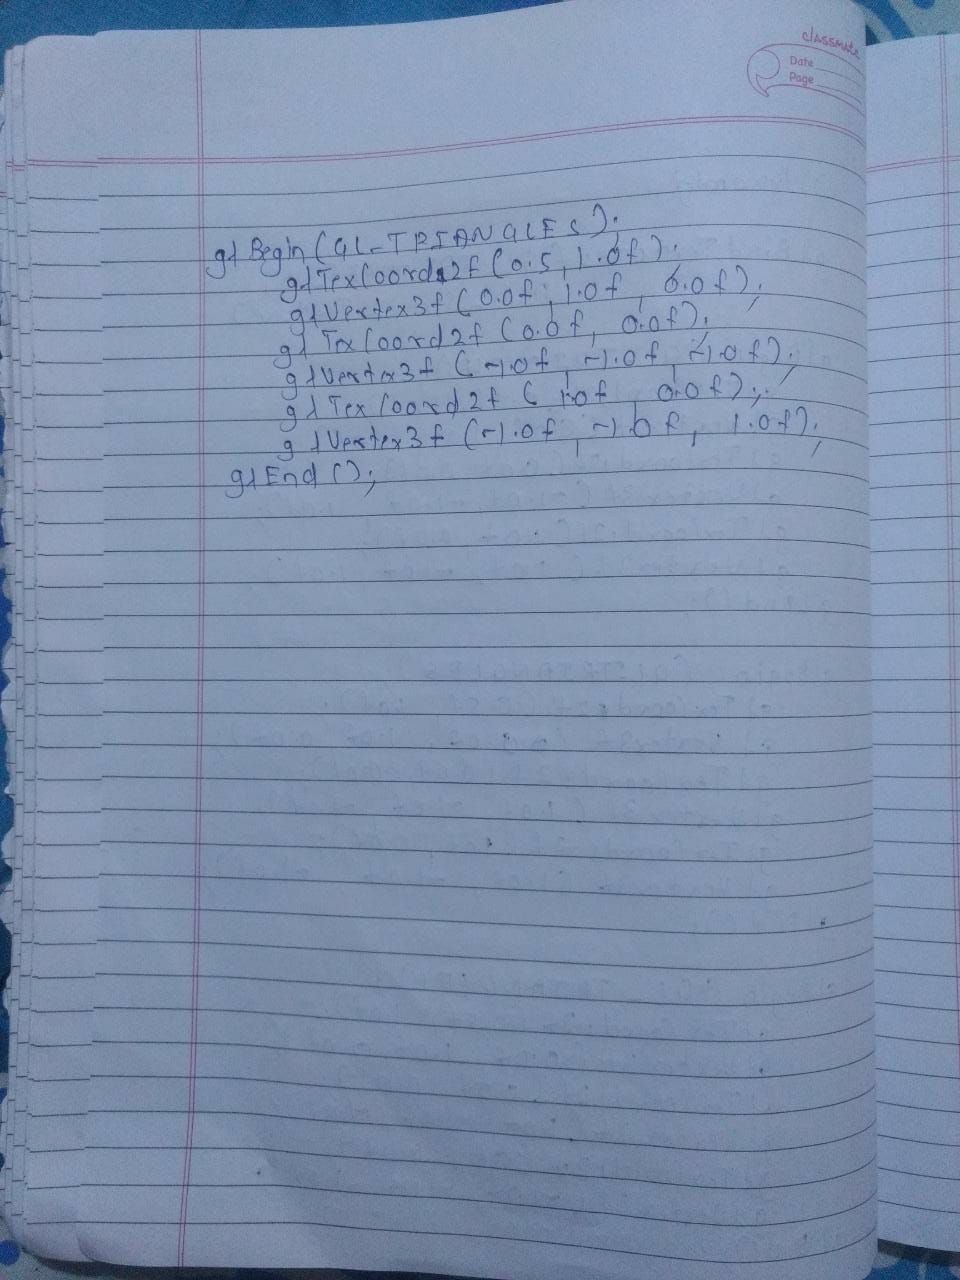 classmate
Date
Page
glBegin(GL-TRIANGLES);
glTexCoord2f(0.5, 1.0f);
glVertex3f(0.0f, 1.0f, 0.0f);
glTexCoord2f(0.0f, 0.0f);
glVertex3f(-1.0f, -1.0f, -1.0f);
glTexCoord2f(1.0f, 0.0f);
glVertex3f(-1.0f, -1.0f, 1.0f);
glEnd();